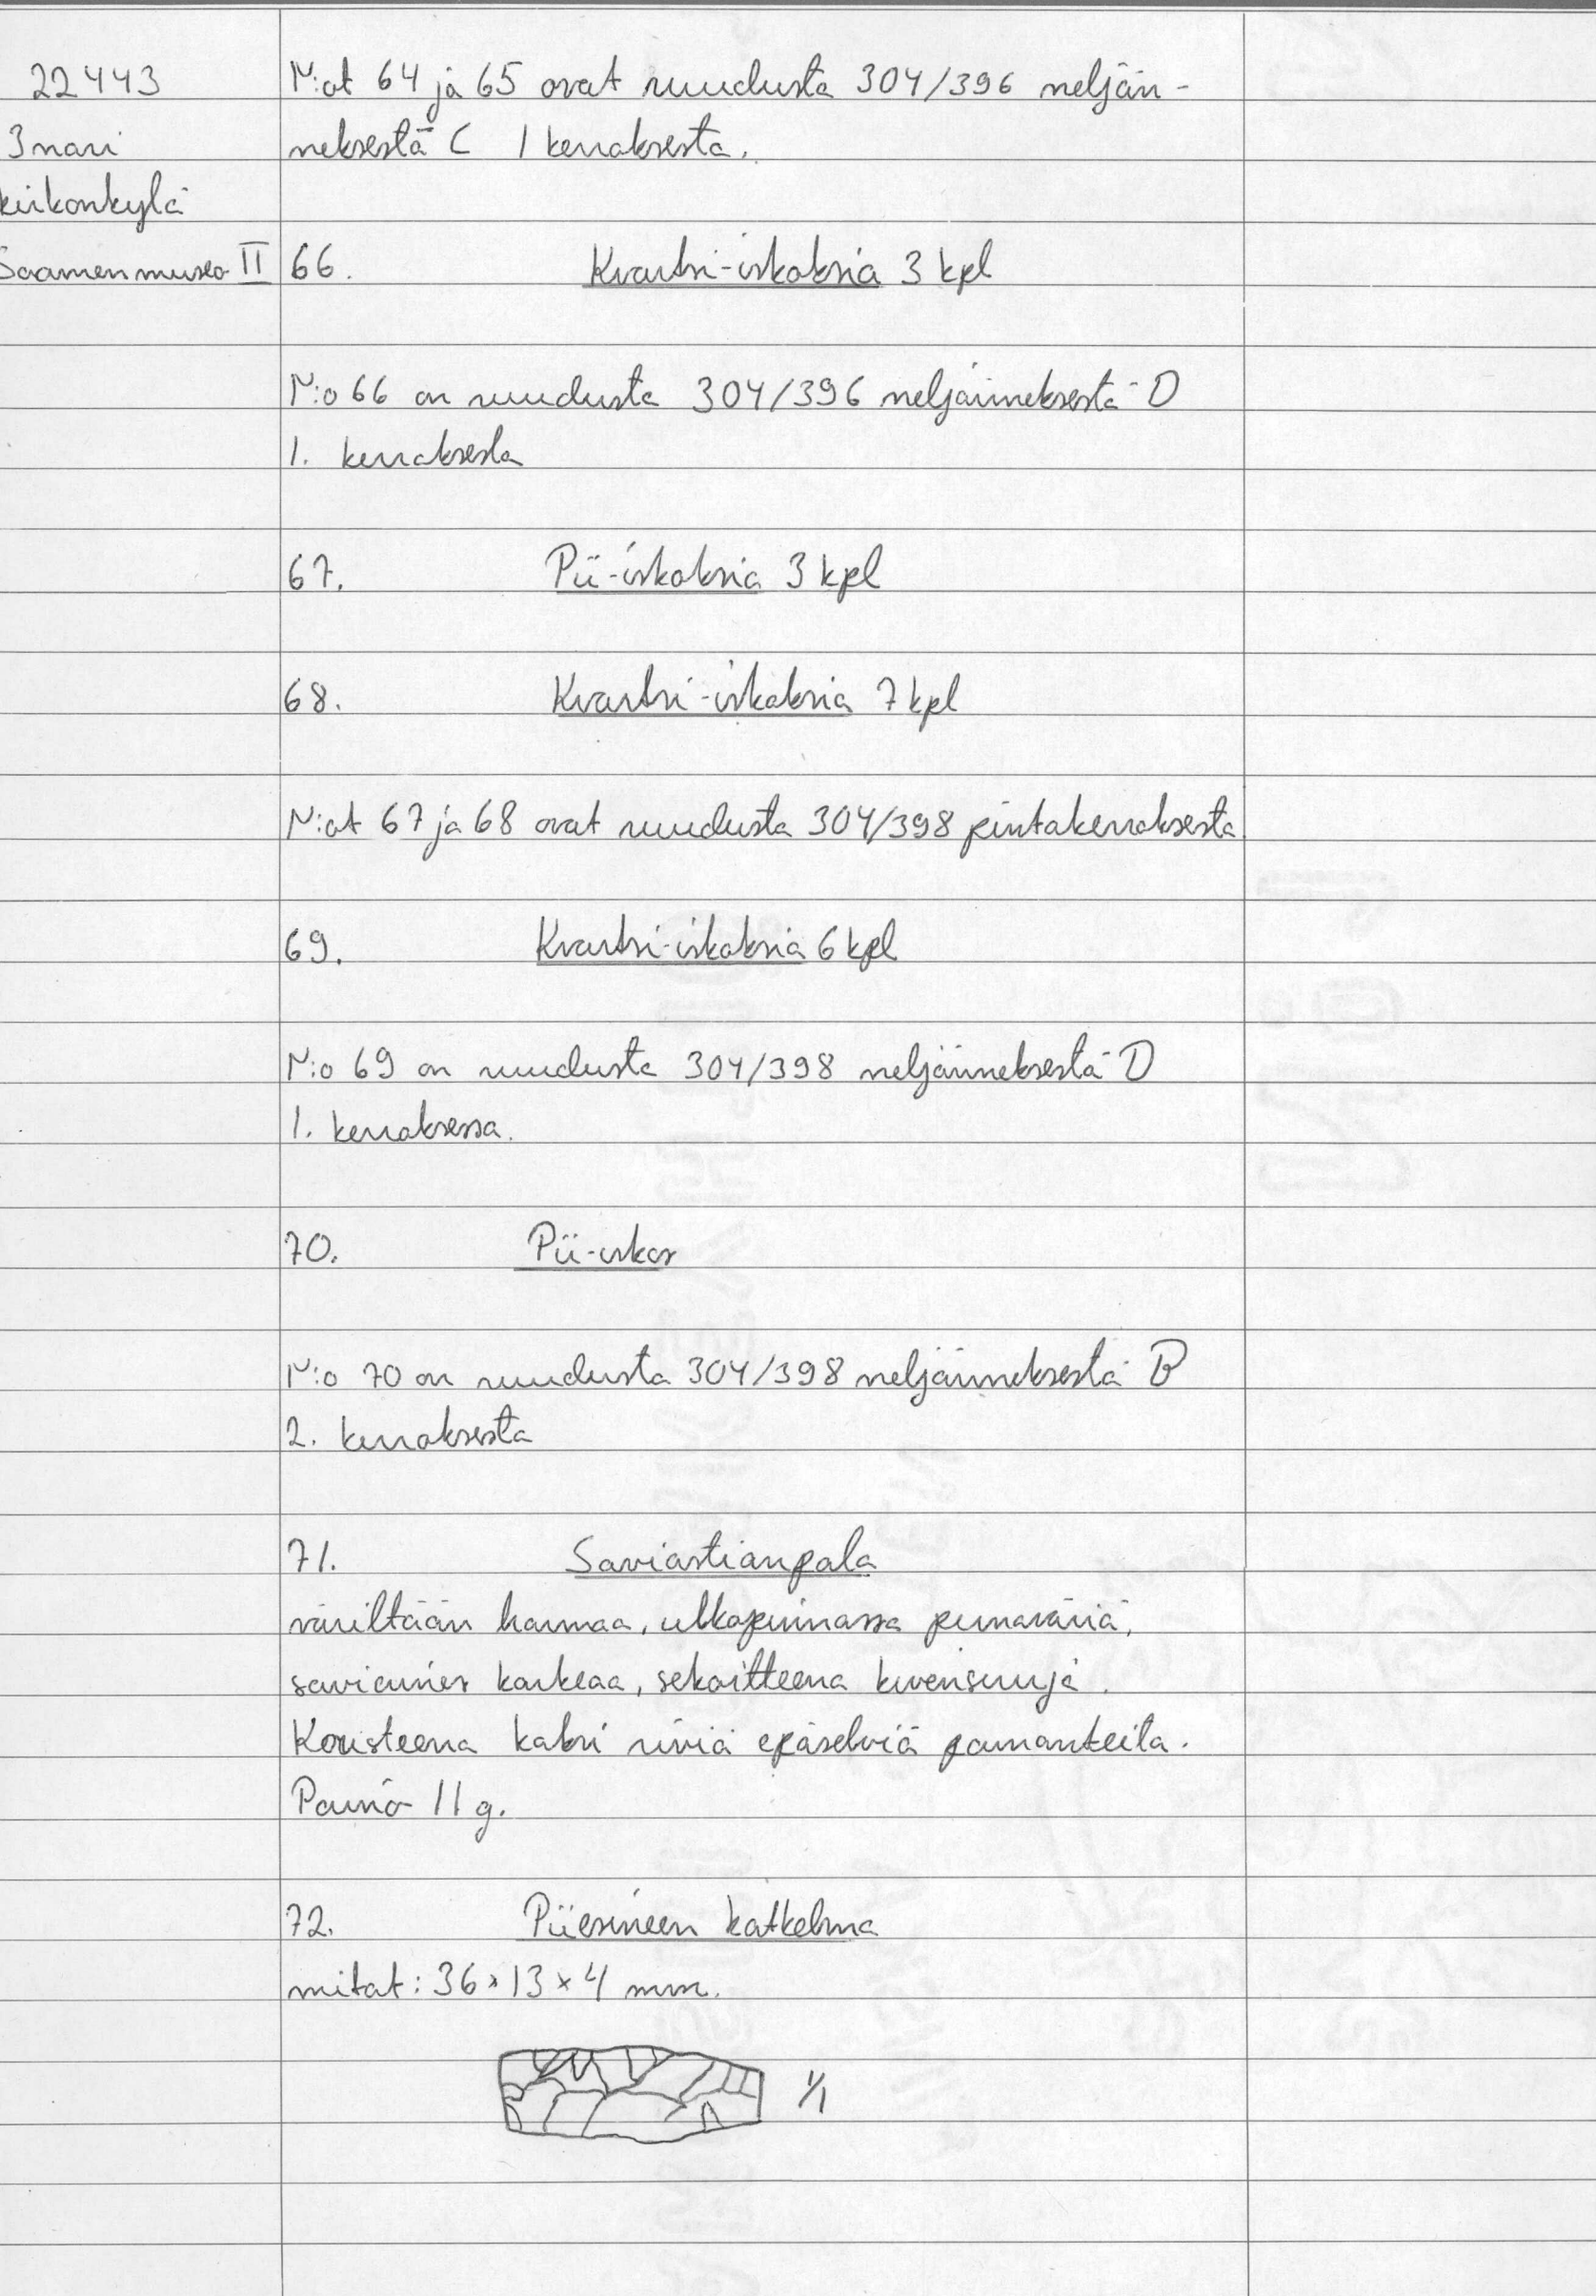 22443
Inari
kirkonkylä
Saamenmuseo II
N:ot 64 ja 65 ovat ruudusta 304/396 neljän-
neksestä C 1 kerroksesta.
66. Kvartsi-iskoksia 3 kpl
N:o 66 on ruudusta 304/396 neljänneksestä D
1. kerroksesta
67. Pii-iskoksia 3 kpl
68. Kvartsi-iskoksia 7 kpl
N:ot 67 ja 68 ovat ruudusta 304/398 pintakerroksesta.
69. Kvartsi-iskoksia 6 kpl
N:o 69 on ruudusta 304/398 neljänneksestä D
1. kerroksessa.
70. Pii-iskos
N:o 70 on ruudusta 304/398 neljänneksestä B
2. kerroksesta
71. Saviastianpala
väriltään harmaa, ulkopinnassa punaväriä,
saviaines karkeaa, sekoitteena kivensiruja.
Koristeena kaksi riviä epäselviä painanteita.
Paino 11 g.
72. Piiesineen katkelma
mitat: 36 x 13 x 4 mm.
1/1